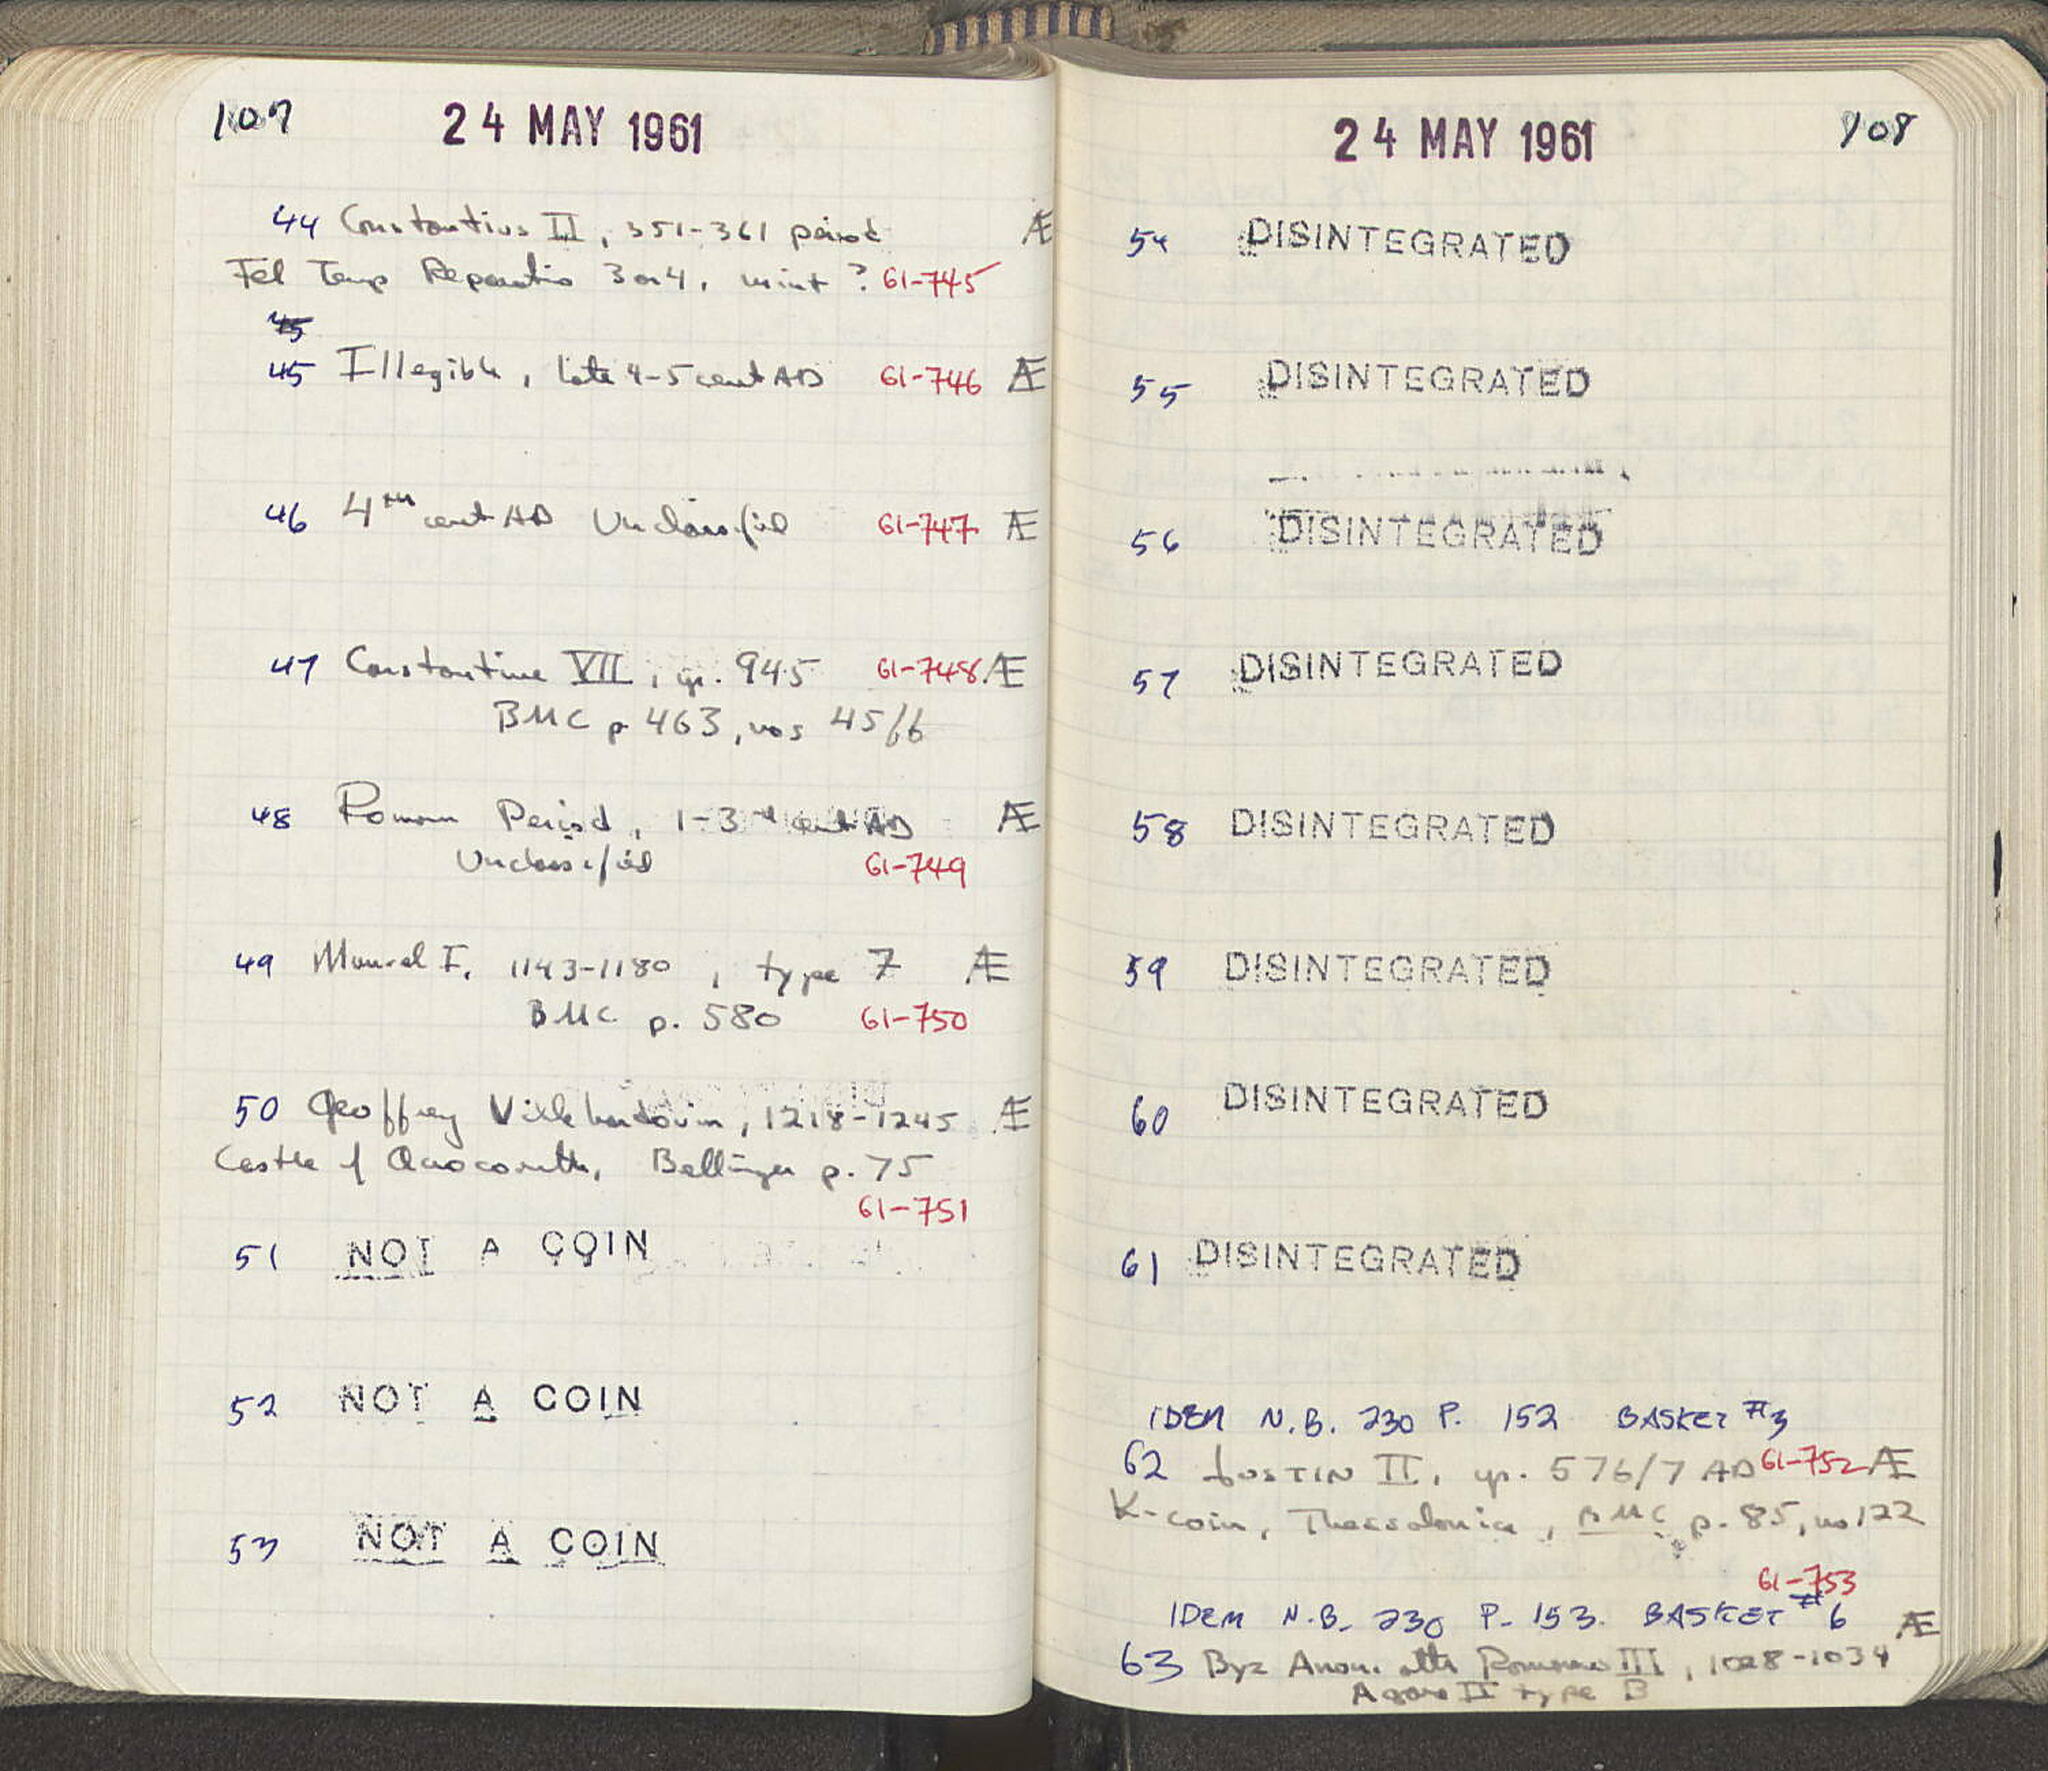 107
24 MAY 1961
44 Constantius II, 351-361 period Æ
Fel Temp Reparatio 3 or 4, mint? 61-745
45
45 Illegible, late 4-5 cent AD 61-746 Æ
46 4th cent AD Unclassified 61-747 Æ
47 Constantine VII, yr. 945 61-748 Æ
BMC p 463, nos 45/ff
48 Roman Period, 1-3rd cent AD Æ
Unclassified 61-749
49 Manuel I, 1143-1180, type 7 Æ
BMC p. 580 61-750
50 Geoffrey Villehardouin, 1218-1245 Æ
Castle of Acrocorinth, Bellinger p. 75
61-751
51 NOT A COIN
52 NOT A COIN
53 NOT A COIN
24 MAY 1961
108
54 DISINTEGRATED
55 DISINTEGRATED
56 DISINTEGRATED
57 DISINTEGRATED
58 DISINTEGRATED
59 DISINTEGRATED
60 DISINTEGRATED
61 DISINTEGRATED
IDEM N.B. 230 P. 152 BASKET #3
62 JUSTIN II, yr. 576/7 AD 61-752 Æ
K-coin, Thessalonica, BMC p. 85, no 122
61-753
IDEM N.B. 230 P. 153. BASKET #6 Æ
63 Byz Anon. attr Romanus III, 1028-1034
Agora II type B